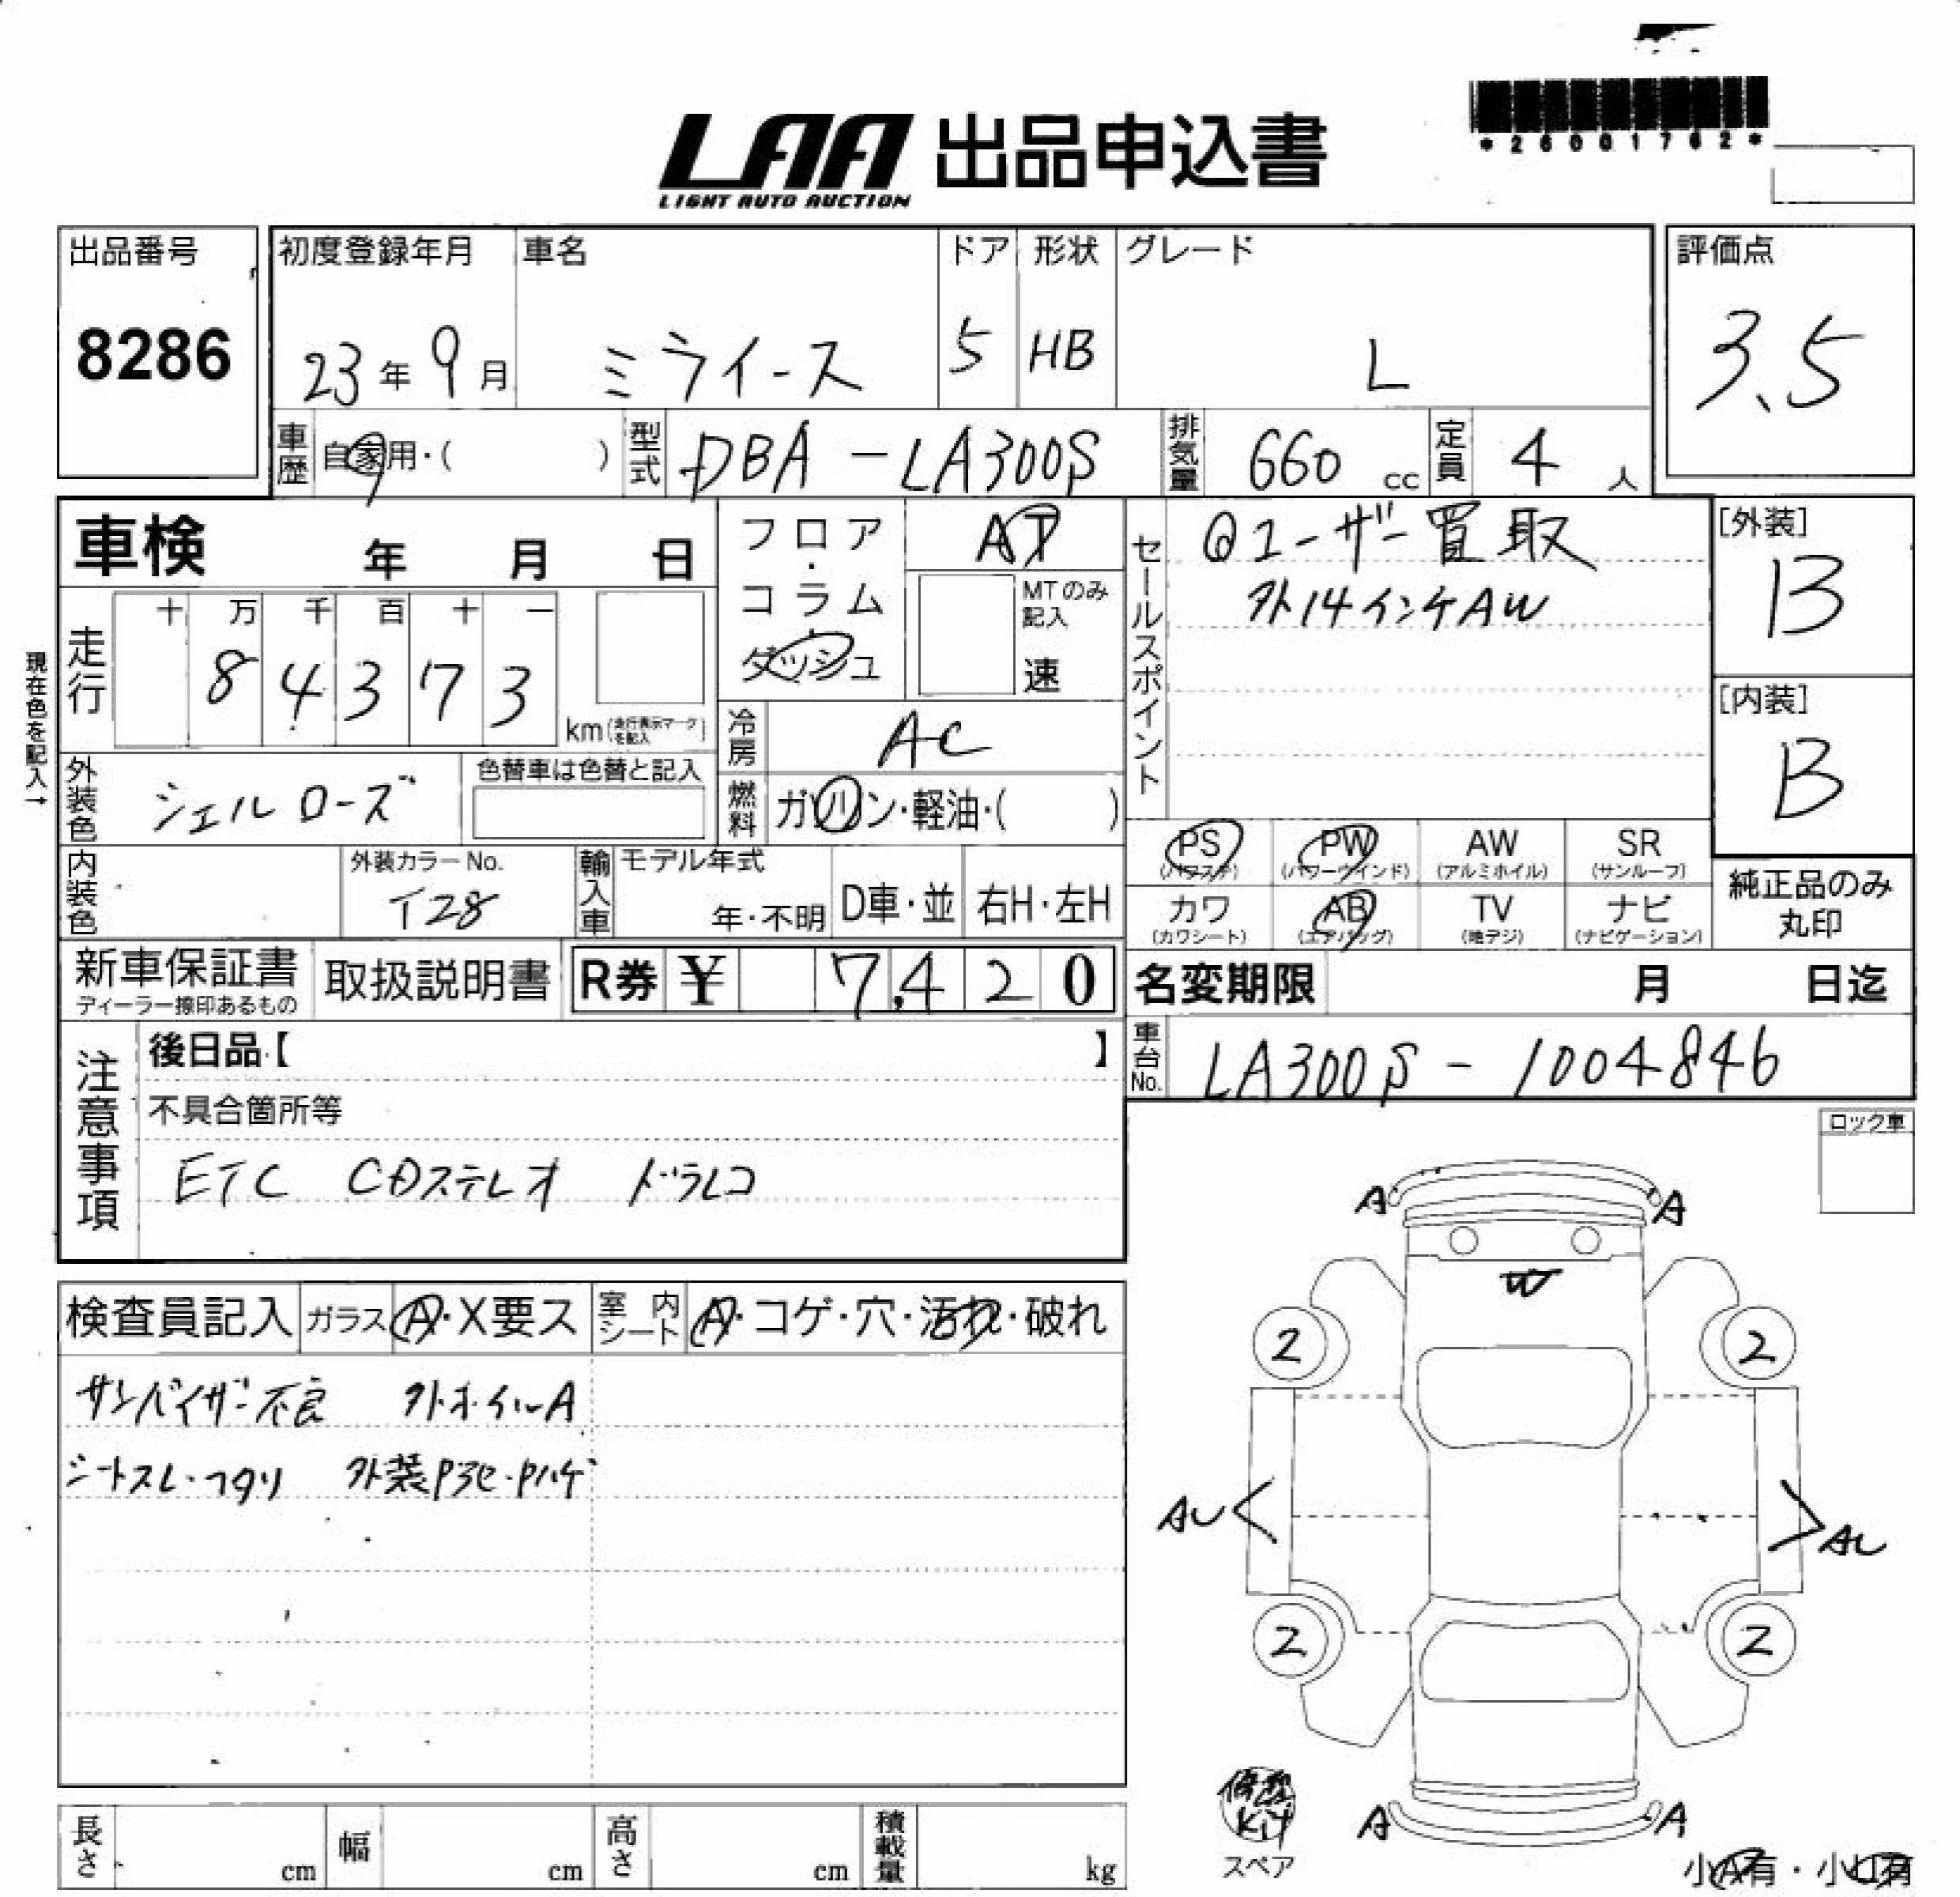 LAA 出品申込書
LIGHT AUTO AUCTION
*26001762*
出品番号
8286
初度登録年月
23年9月
車名
ミライース
ドア
5
形状
HB
グレード
L
評価点
3.5
車歴
自家用・( )
型式
DBA-LA300S
排気量
660 cc
定員
4 人
車検 年 月 日
フロア・コラム
ダッシュ
AT
MTのみ記入
速
セールスポイント
@ユーザー買取
外14インチAW
[外装]
B
[内装]
B
現在色を記入→
走行
十 万 千 百 十 一
8 4 3 7 3
km(走行表示マークを記入)
冷房
AC
外装色
シェルローズ
色替車は色替と記入
燃料
ガソリン・軽油・( )
内装色
外装カラーNo.
T28
輸入車
モデル年式
年・不明
D車・並
右H・左H
PS
(パワステ)
PW
(パワーウインド)
AW
(アルミホイル)
SR
(サンルーフ)
カワ
(カワシート)
AB
(エアバッグ)
TV
(地デジ)
ナビ
(ナビゲーション)
純正品のみ
丸印
新車保証書
ディーラー捺印あるもの
取扱説明書
R券 ¥ 7,420
名変期限 月 日迄
車台No.
LA300S-1004846
注意事項
後日品【 】
不具合箇所等
ETC CDステレオ ドラレコ
ロック車
検査員記入
ガラス
A・X要ス
室内シート
A・コゲ・穴・汚れ・破れ
サンバイザー不良 外ホイルA
シートスレ・フタリ 外装Pヨセ・Pハゲ
A A
W
2 2
AU AU
2 2
A A
修理
Kit
スペア
小A有・小U有
長さ cm
幅 cm
高さ cm
積載量 kg